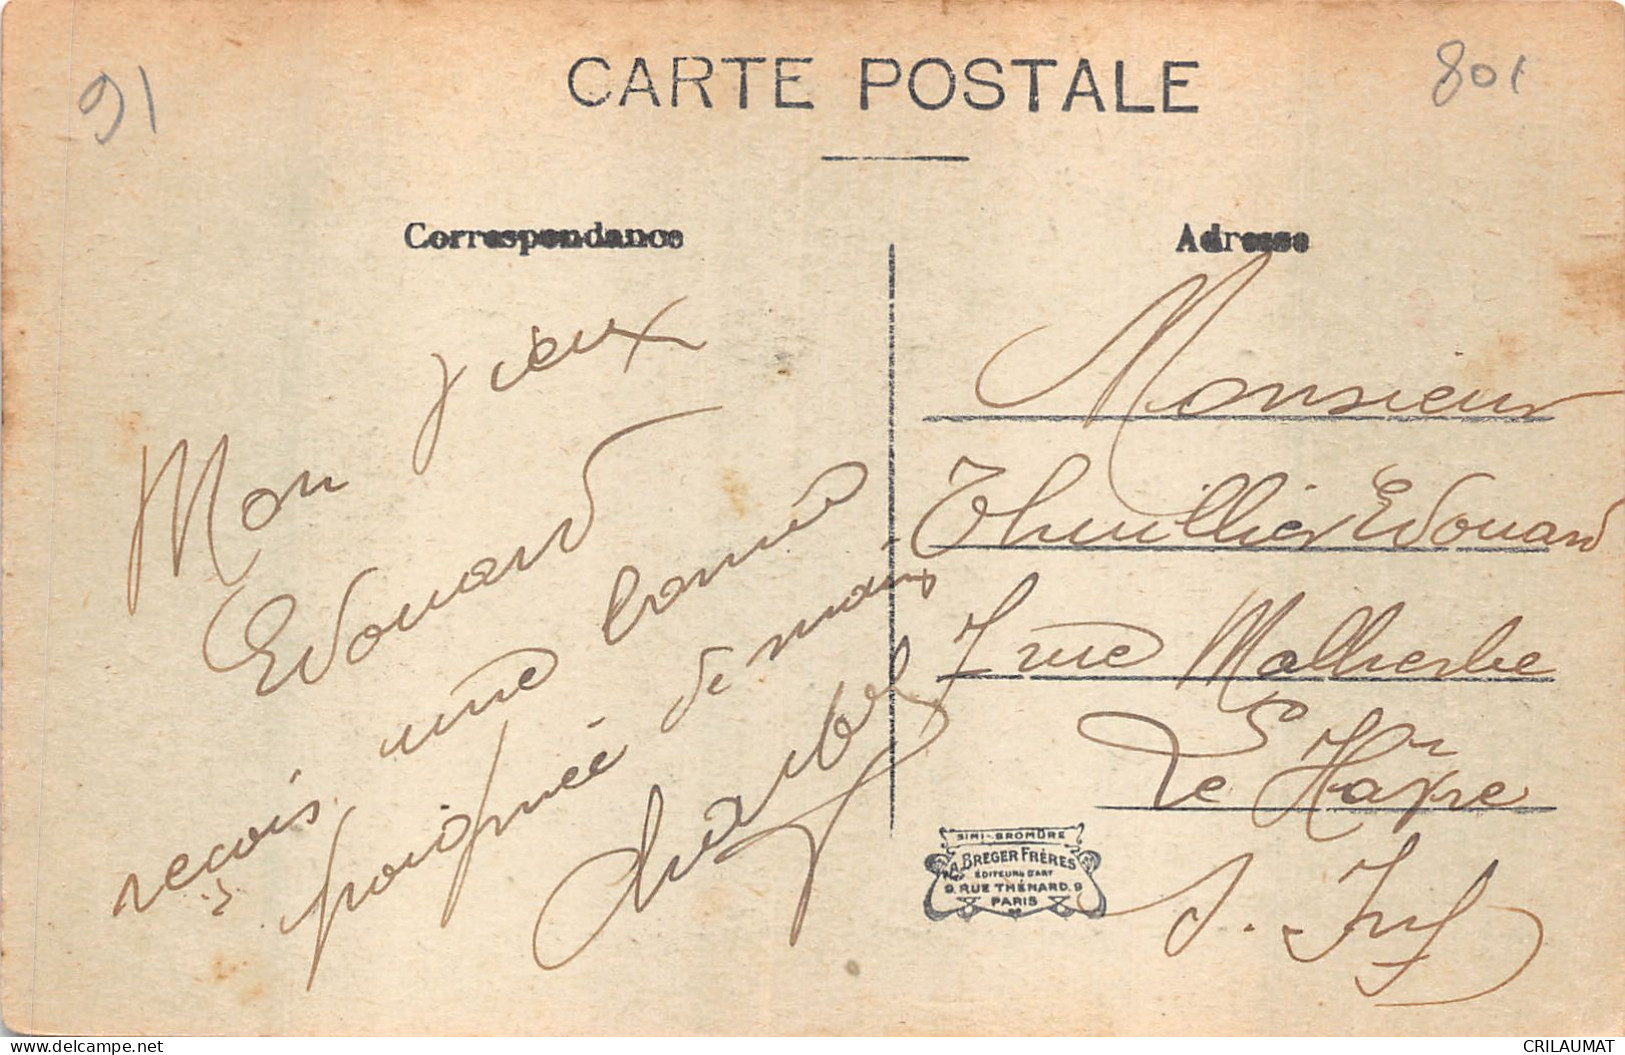 91
CARTE POSTALE
801
Correspondance
Mon vieux
Edouard
reçois une bonne
poignée de main
Adresse
Monsieur
Thuillier Edouard
7 rue Malherbe
Le Havre
S. Inf
SIMI-BROMURE
A. BREGER FRÈRES
ÉDITEURS D'ART
9. RUE THÉNARD. 9
PARIS
www.delcampe.net
CRILAUMAT